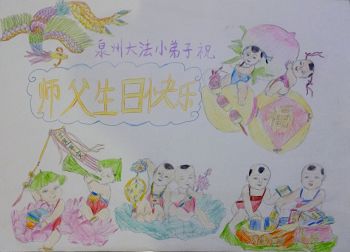 泉州大法小弟子祝
师父生日快乐
福